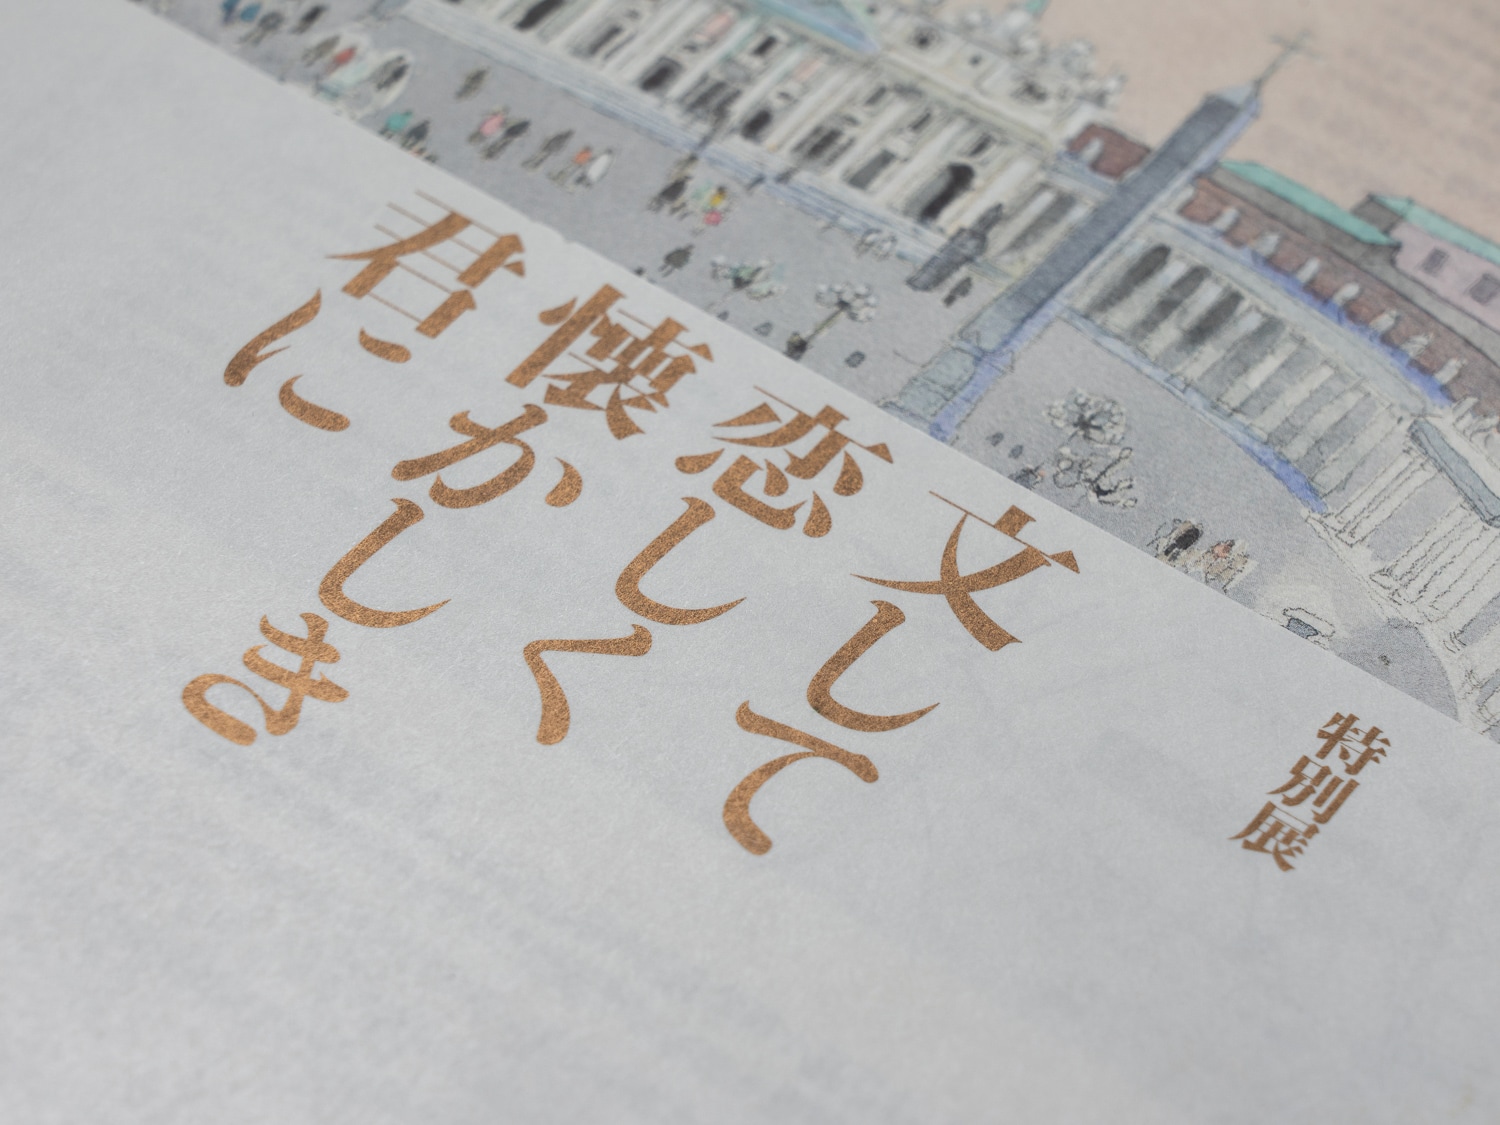 特別展
文して
恋しく
懐かしき
君に